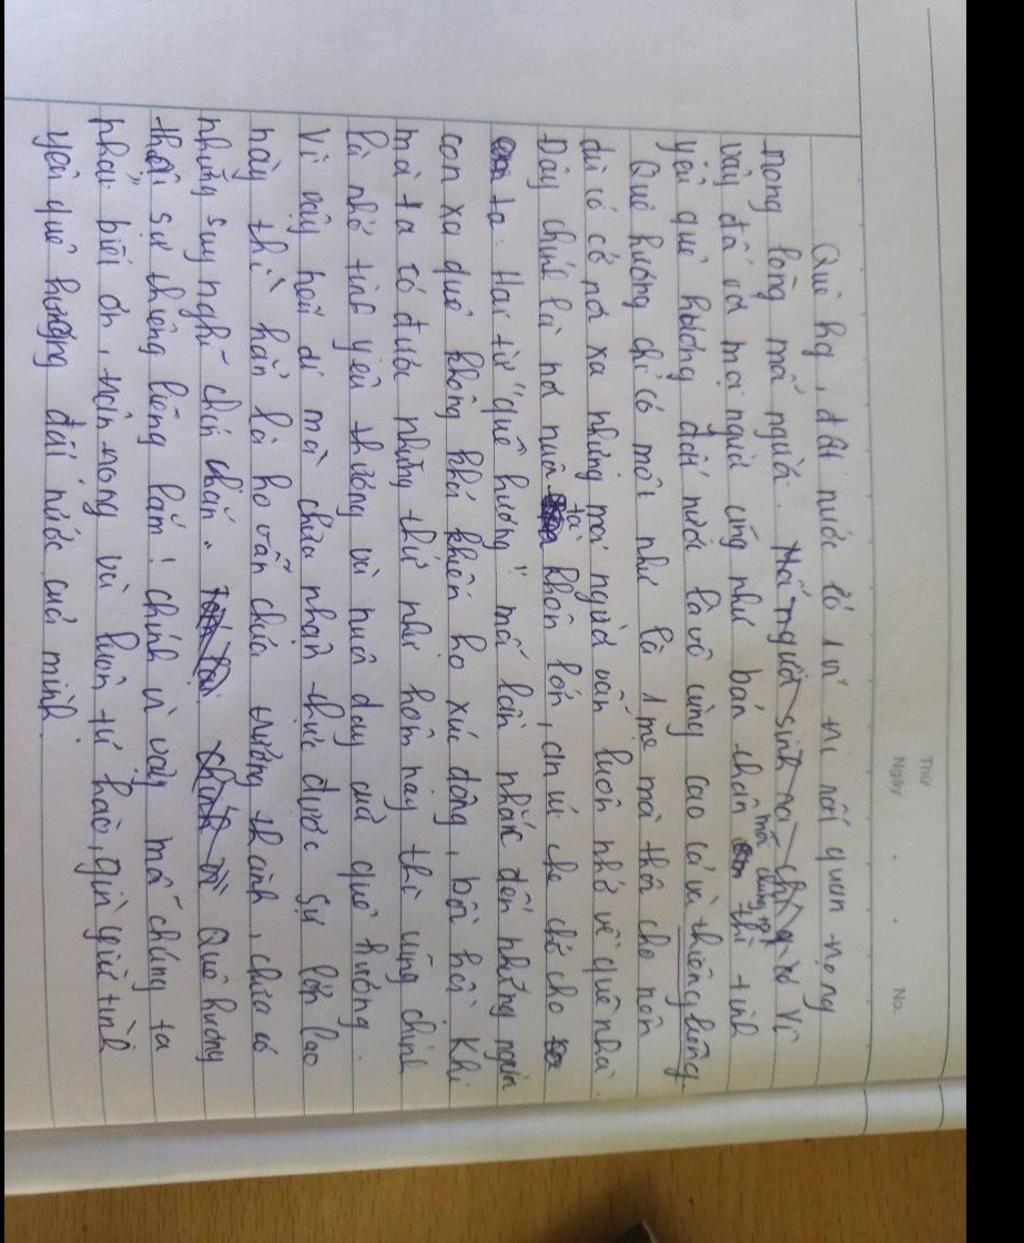 Thứ
Ngày . . No.
Quê hg, đất nước có 1 vị trí rất quan trọng
trong lòng mỗi người. Mỗi người sinh ra Vì
vậy đối với mọi người cũng như bản thân mỗi chúng ta thì tình
yêu quê hương đất nước là vô cùng cao cả và thiêng liêng.
Quê hương chỉ có một như là 1 mẹ mà thôi cho nên
dù có có nơi xa nhưng mọi người vẫn luôn nhớ về quê nhà.
Đây chính là nơi nuôi ta khôn lớn, an ủi che chở cho
ta. Hai từ "quê hương" mỗi lần nhắc đến những người
con xa quê không khỏi khiến họ xúc động, bồi hồi. Khi
mà ta có được những thứ như hôm nay thì cũng chính
là nhờ tình yêu thương và nuôi dạy của quê hương.
Vì vậy nếu ai mà chưa nhận thức được sự lớn lao
này thì hẳn là họ vẫn chưa trưởng thành, chưa có
những suy nghĩ chín chắn. Quê hương
thật sự thiêng liêng lắm! chính vì vậy mỗi chúng ta
phải biết ơn, trân trọng và luôn tự hào, gìn giữ tình
yêu quê hương đất nước của mình.